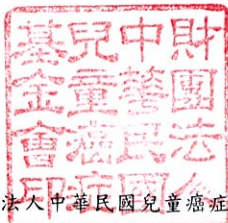 財團法人
中華民國
兒童癌症
基金會印
法人中華民國兒童癌症